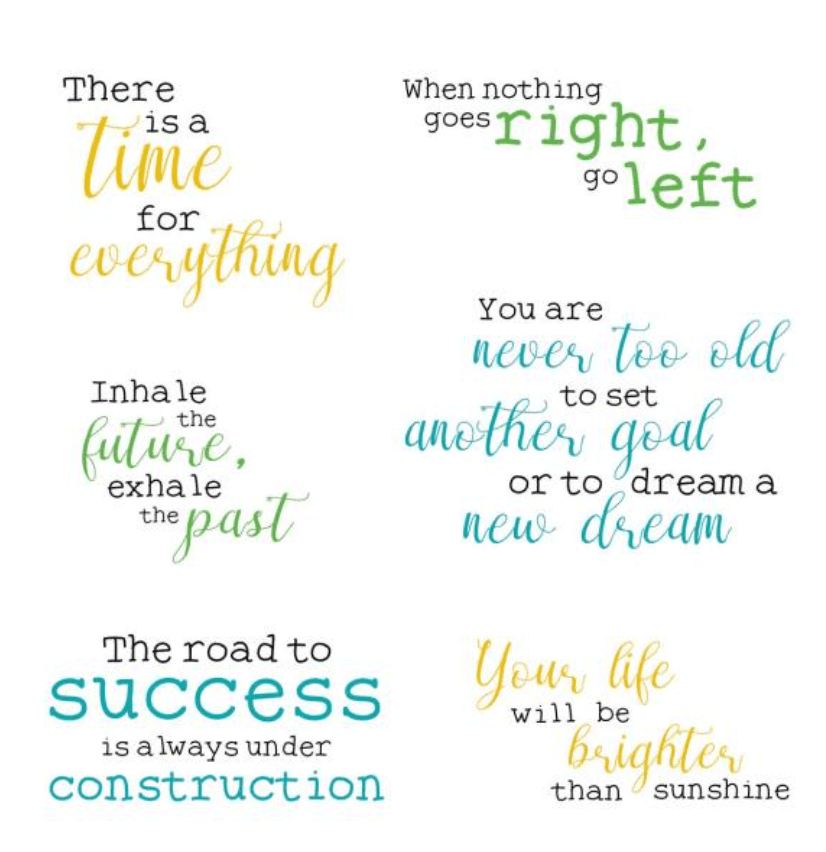 There
is a
time
for
everything
When nothing
goes right,
go left
Inhale
the
future,
exhale
the past
You are
never too old
to set
another goal
or to dream a
new dream
The road to
success
is always under
construction
Your life
will be
brighter
than sunshine